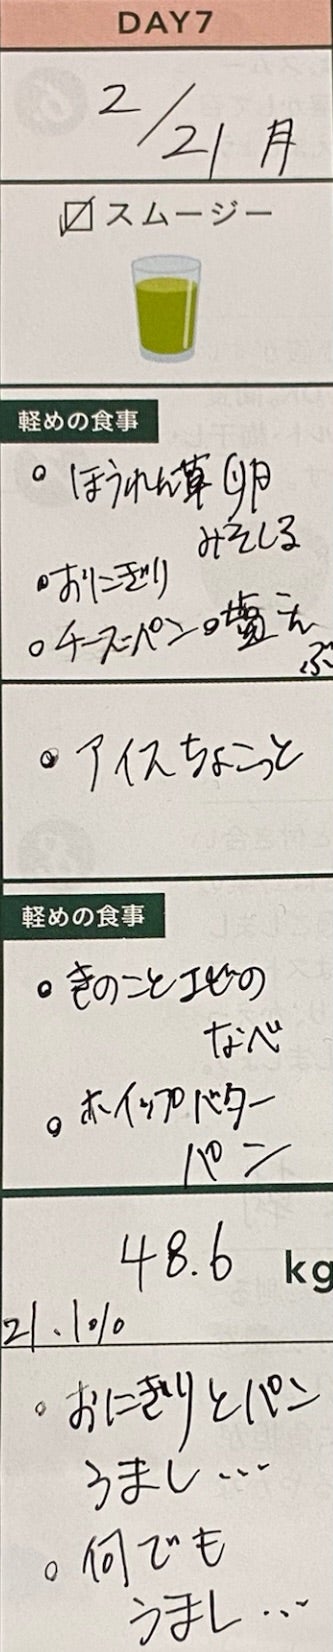 DAY7
2/21 月
☑スムージー
軽めの食事
○ほうれん草 卵
みそしる
●おにぎり
○チーズパン ○塩こん
ぶ
●アイスちょこっと
軽めの食事
●きのことエビの
なべ
○ホイップバター
パン
48.6 kg
21.1%
○おにぎりとパン
うまし…
○何でも
うまし…